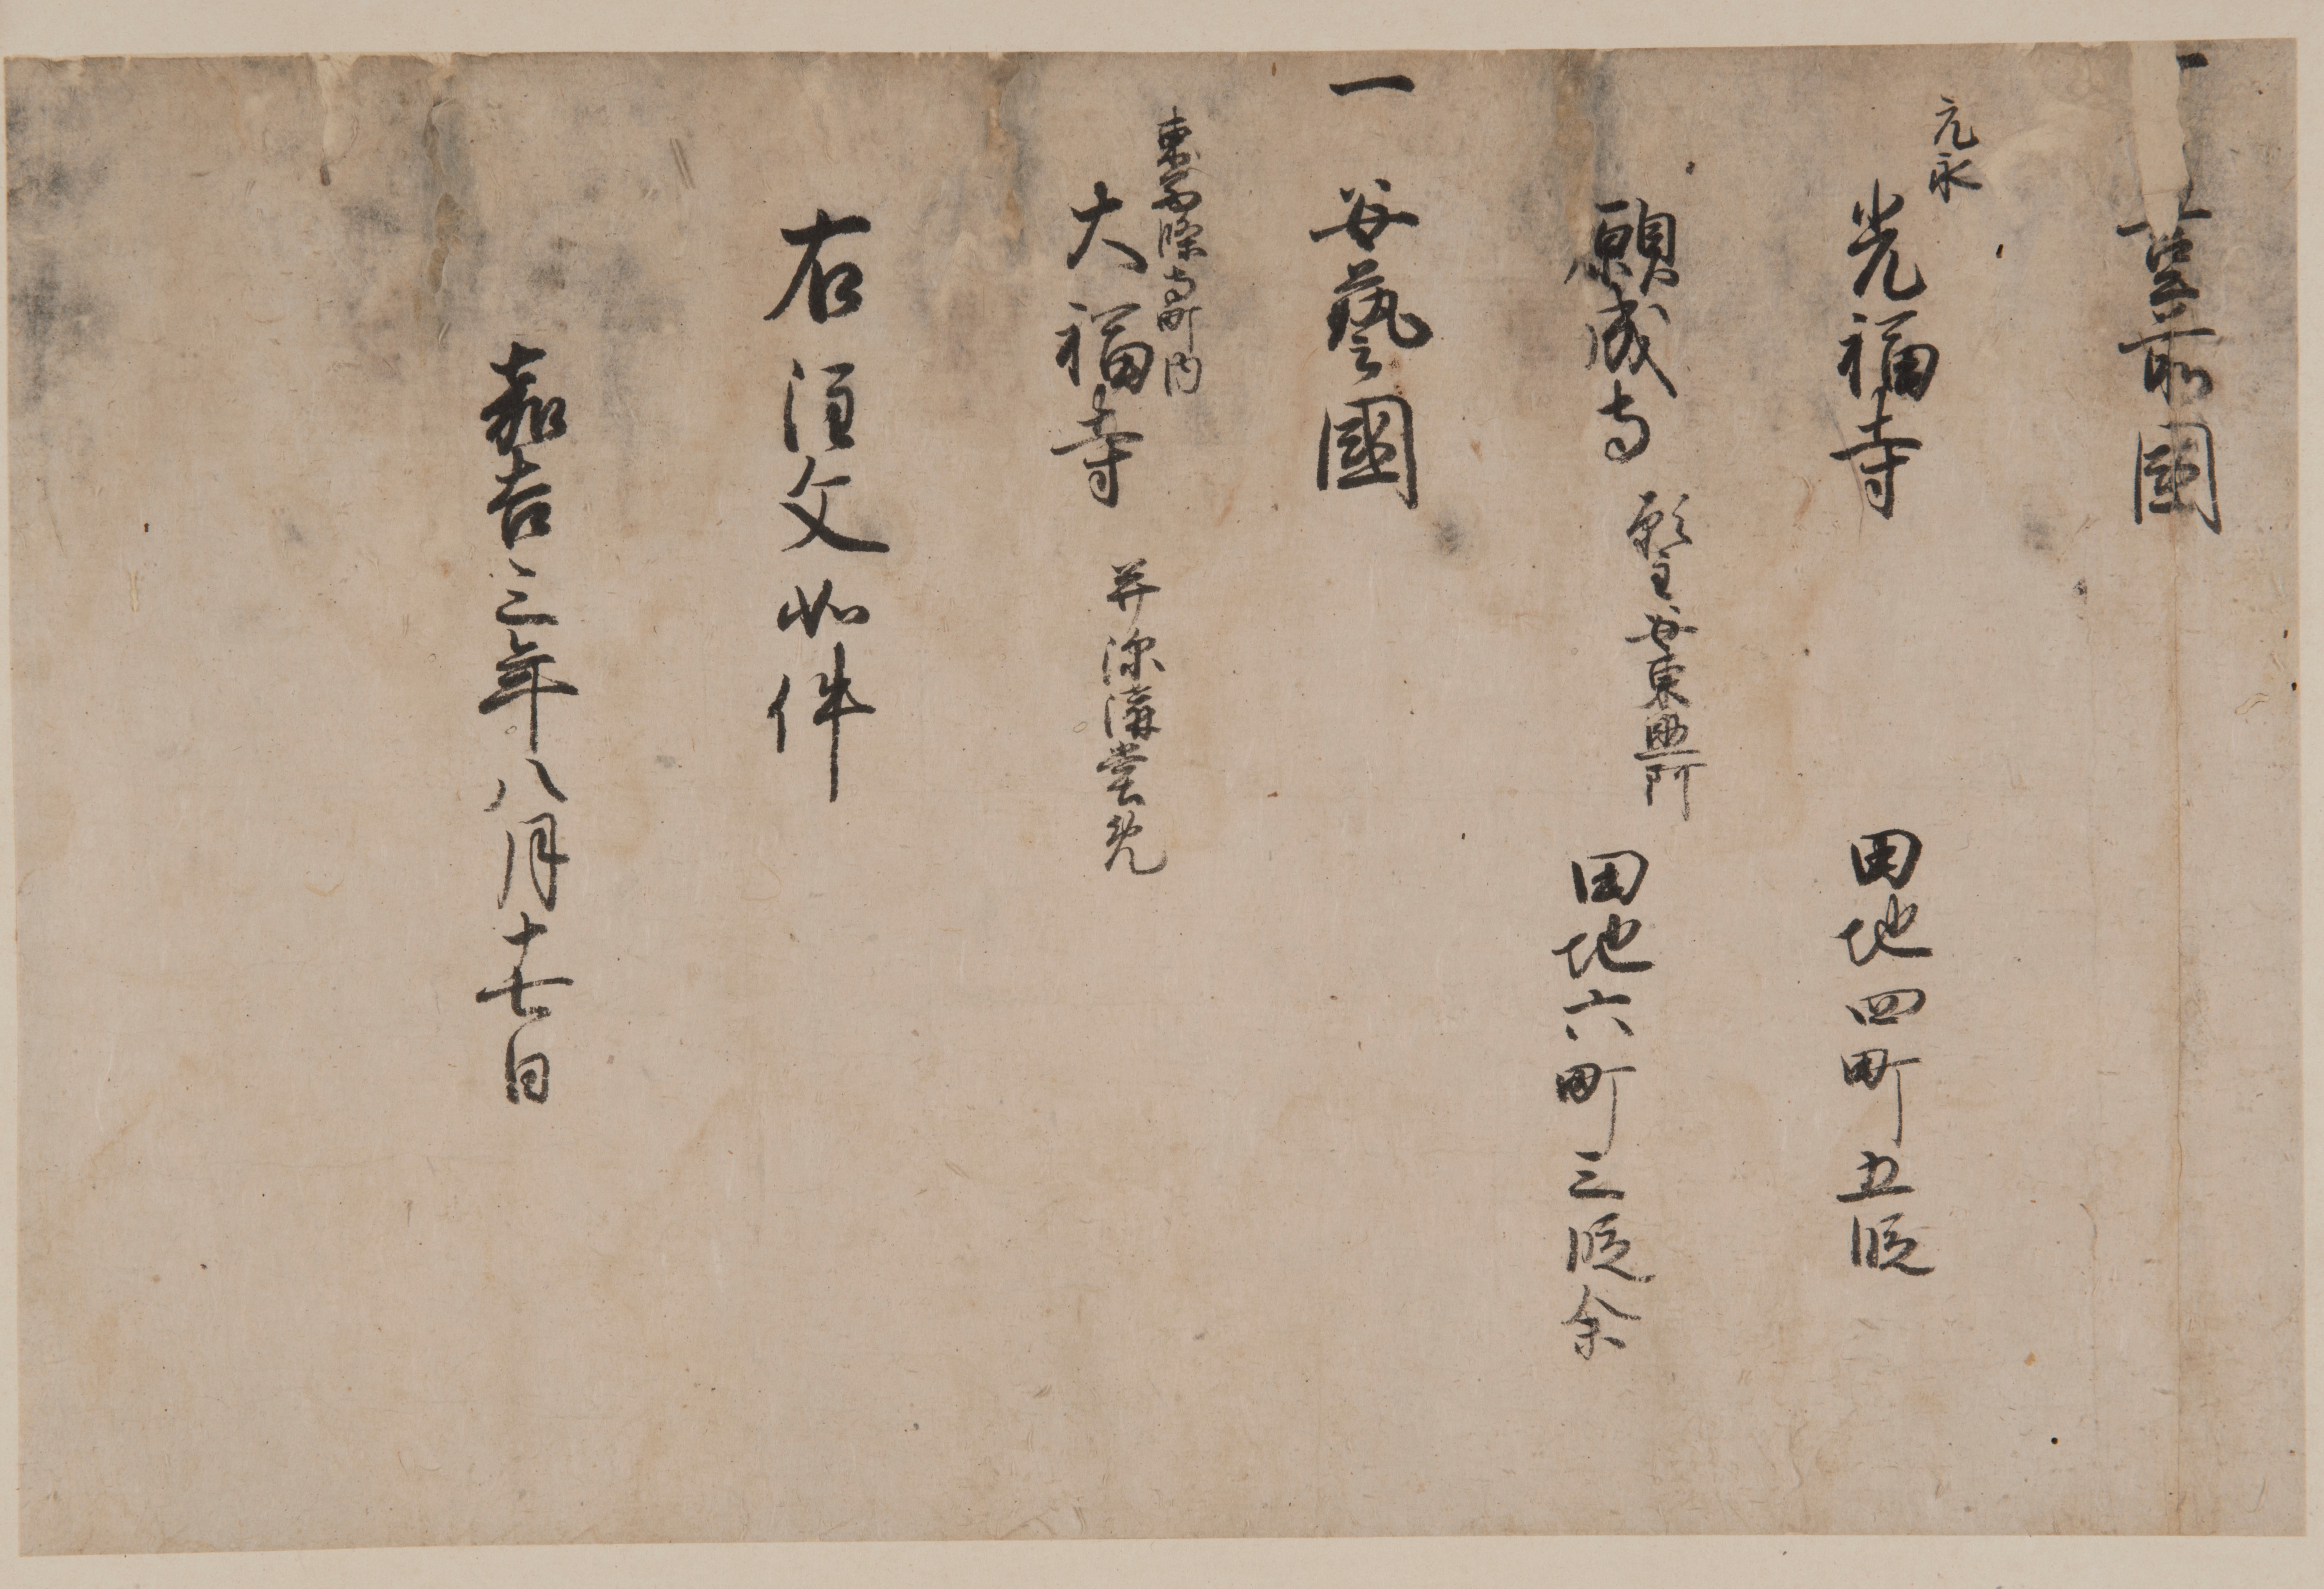 一 豊前國
元永
光福寺 田地四町五段
願成寺 願主安東 田地六町三段余
一 安藝國
東西條寺町内
大福寺 并深溝堂免
右注文如件
嘉吉三年八月十七日